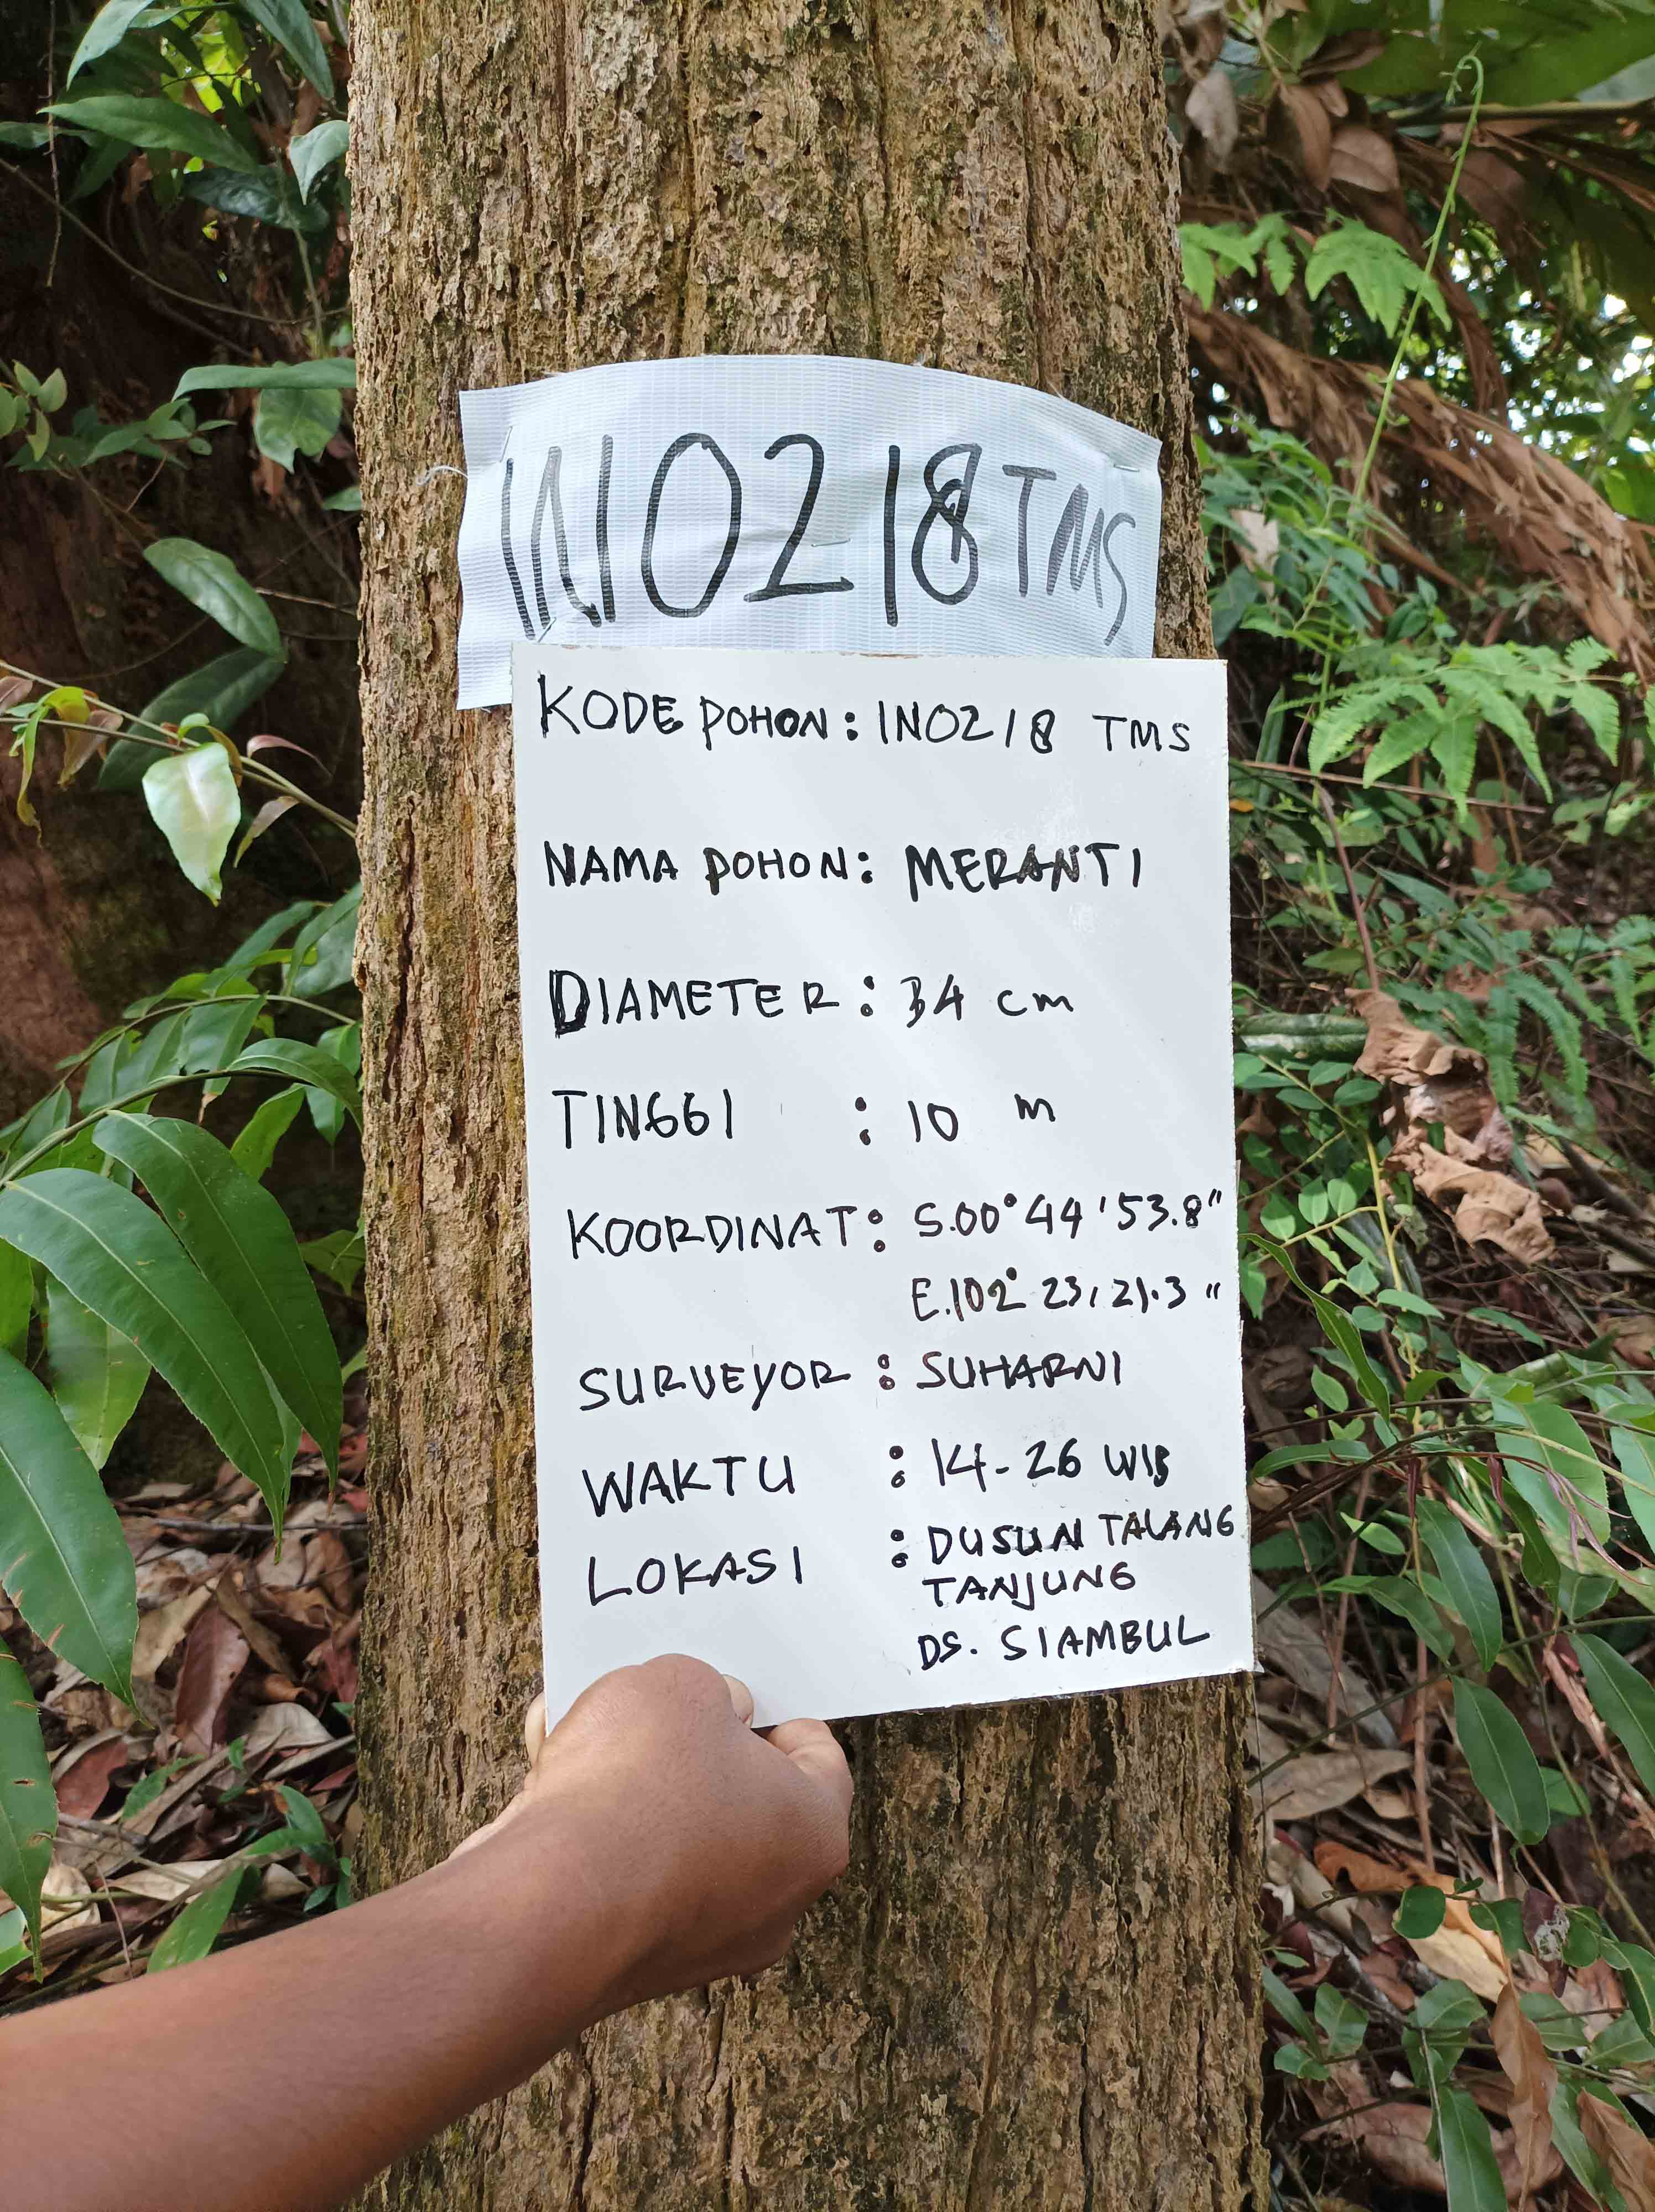 IN0218 TMS
KODE POHON: IN0218 TMS
NAMA POHON: MERANTI
DIAMETER: 34 cm
TINGGI : 10 m
KOORDINAT: S.00°44'53.8"
E.102° 23,21.3"
SURVEYOR : SUHARNI
WAKTU : 14-26 WIB
LOKASI : DUSUN TALANG
TANJUNG
DS. SIAMBUL